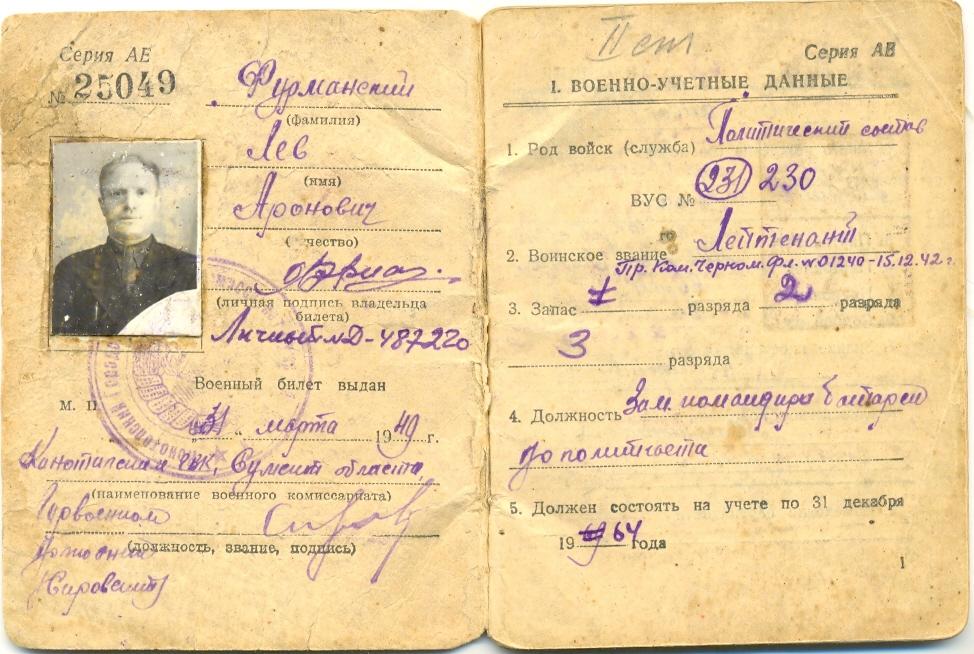 Серия АЕ
№ 25049
Фурманский
(фамилия)
Лев
(имя)
Аронович
( чество)
(личная подпись владельца
билета)
Личный № Д-487220
Военный билет выдан
М. П
31 " марта 1949 г.
ГВК, Сумской области
(наименование военного комиссариата)
Горвоенком
(должность, звание, подпись)
II ст
Серия АЕ
I. ВОЕННО-УЧЕТНЫЕ ДАННЫЕ
1. Род войск (служба) Политический состав
ВУС № 231 230
2. Воинское звание Лейтенант
Пр. Ком. Черном. Фл. № 01240-15.12.42 г.
3. Запас 1 разряда 2 разряда
3 разряда
4. Должность Зам. командира батареи
по политчасти
5. Должен состоять на учете по 31 декабря
19 64 года
1